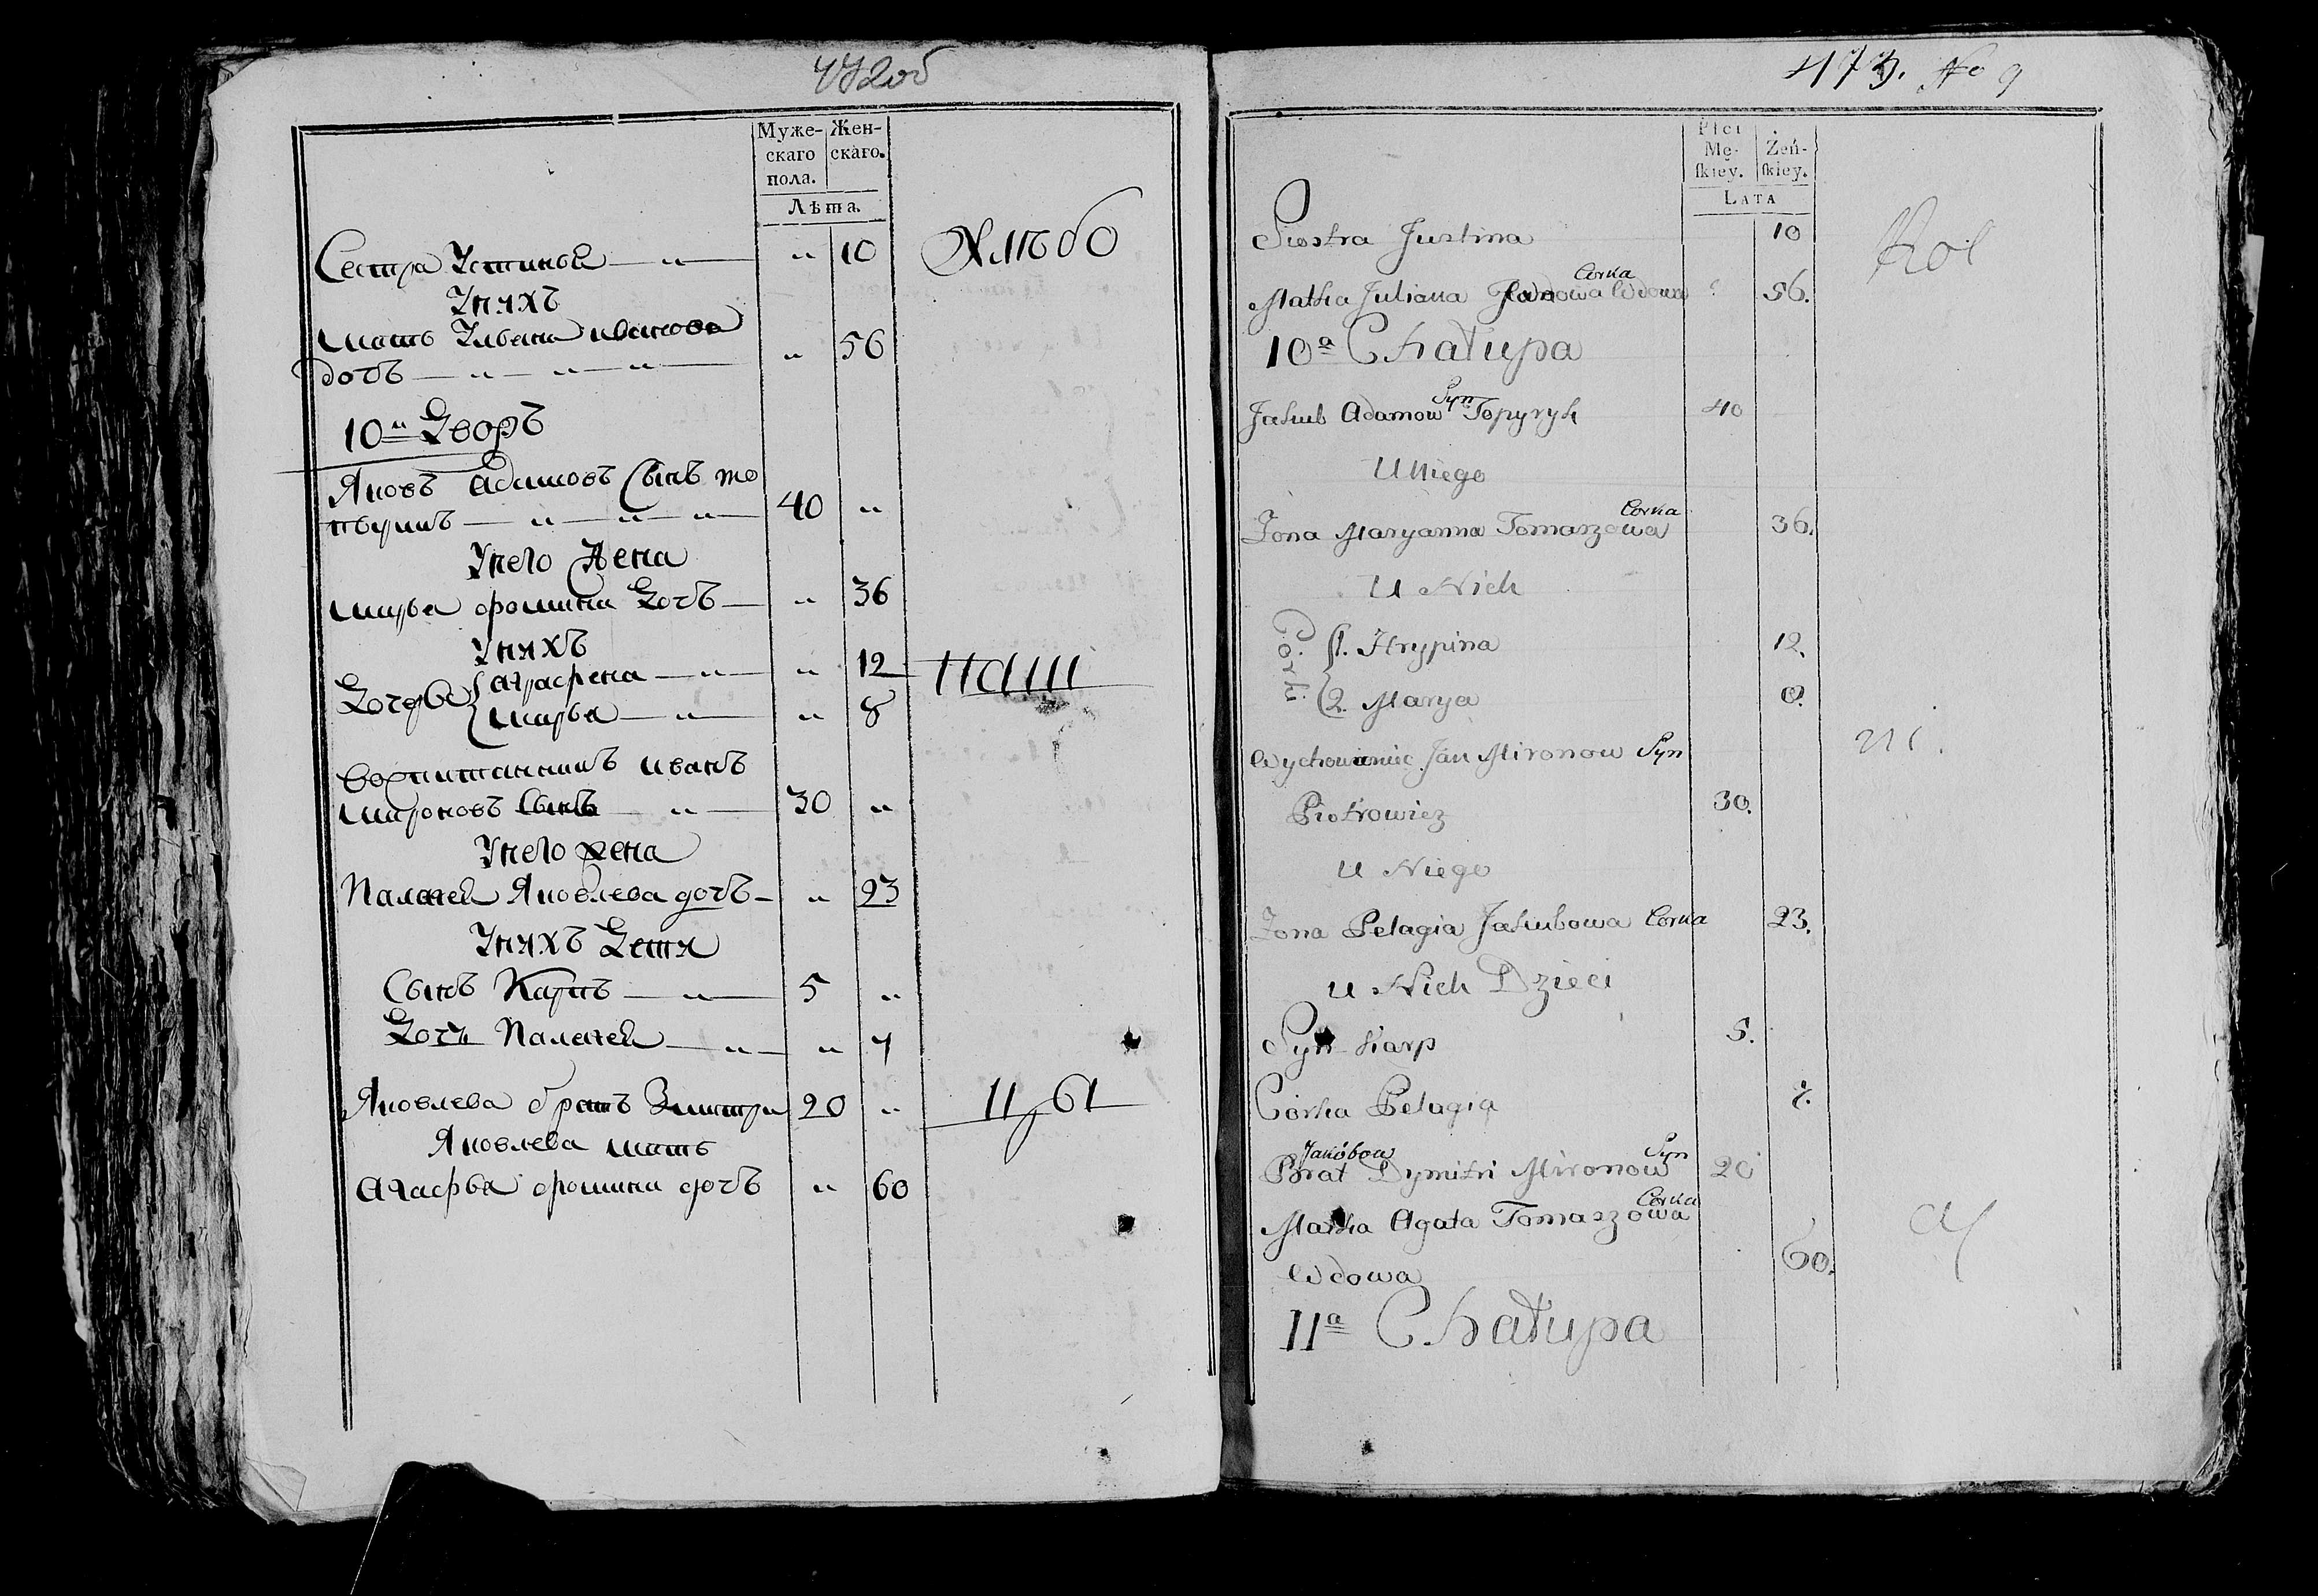 472об
Муже- Жен-
скаго скаго.
пола.
Лѣта.
Сестра Устинья — " — " 10
Унихъ
мать Ульяна иванова
дочь — " — " — " — " 56
10й Дворъ
Яковъ адамовъ Сынъ то
" — " — " — 40 "
Унего Жена
марья фомина Дочь — " 36
Унихъ
Дочерье { аграфена — " — " 12
{ марья — " — " 8
воспитанникъ иванъ
мироновъ Сынъ — " — 30 "
Унего жена
Палагея Яковлева дочь — " 23
Унихъ Детя
Сынъ Карпъ — " — 5 "
Дочь Палагея — " — " 7
Яковлева братъ Змитри 20 "
Яковлева мать
агафья фомина дочь " 60
473. No 9
Płci
Mę- Żeń-
ſkiey. ſkiey.
LATA
Siostra Justina 10
Corka
Matka Juliana Janowa Wdowa 56.
10a Chałupa
Syn
Jakub Adamow Topyryk 40
U Niego
Corka
Żona Maryanna Tomaszowa 36.
U Nich
Corki {1. Hrypina 12.
{2. Marya 8.
Wychowaniec Jan Mironow Syn
Piotrowicz 30.
U Niego
Żona Pelagia Jakubowa Corka 23.
U Nich Dzieci
Syn Karp 5.
Córka Pelagia 7.
Jakóbow Syn
Brat Dymitri Mironow 20
Corka
Matka Agata Tomaszowa
Wdowa 60.
11a Chałupa